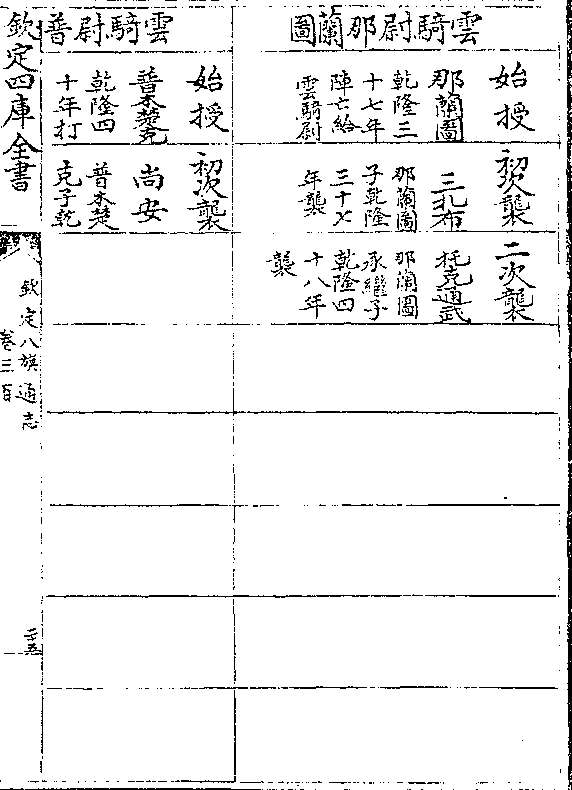 雲騎尉那蘭圖
始授
那蘭圖
乾隆三
十七年
陣亡給
雲騎尉
初次襲
三扎布
那蘭圖
子乾隆
三十七
年襲
二次襲
托克通武
那蘭圖
承繼子
乾隆四
十八年
襲
雲騎尉普
始授
普木楚克
乾隆四
十年打
初次襲
尚安
普木楚
克子乾
欽定四庫全書
欽定八旗通志
卷三百
二五